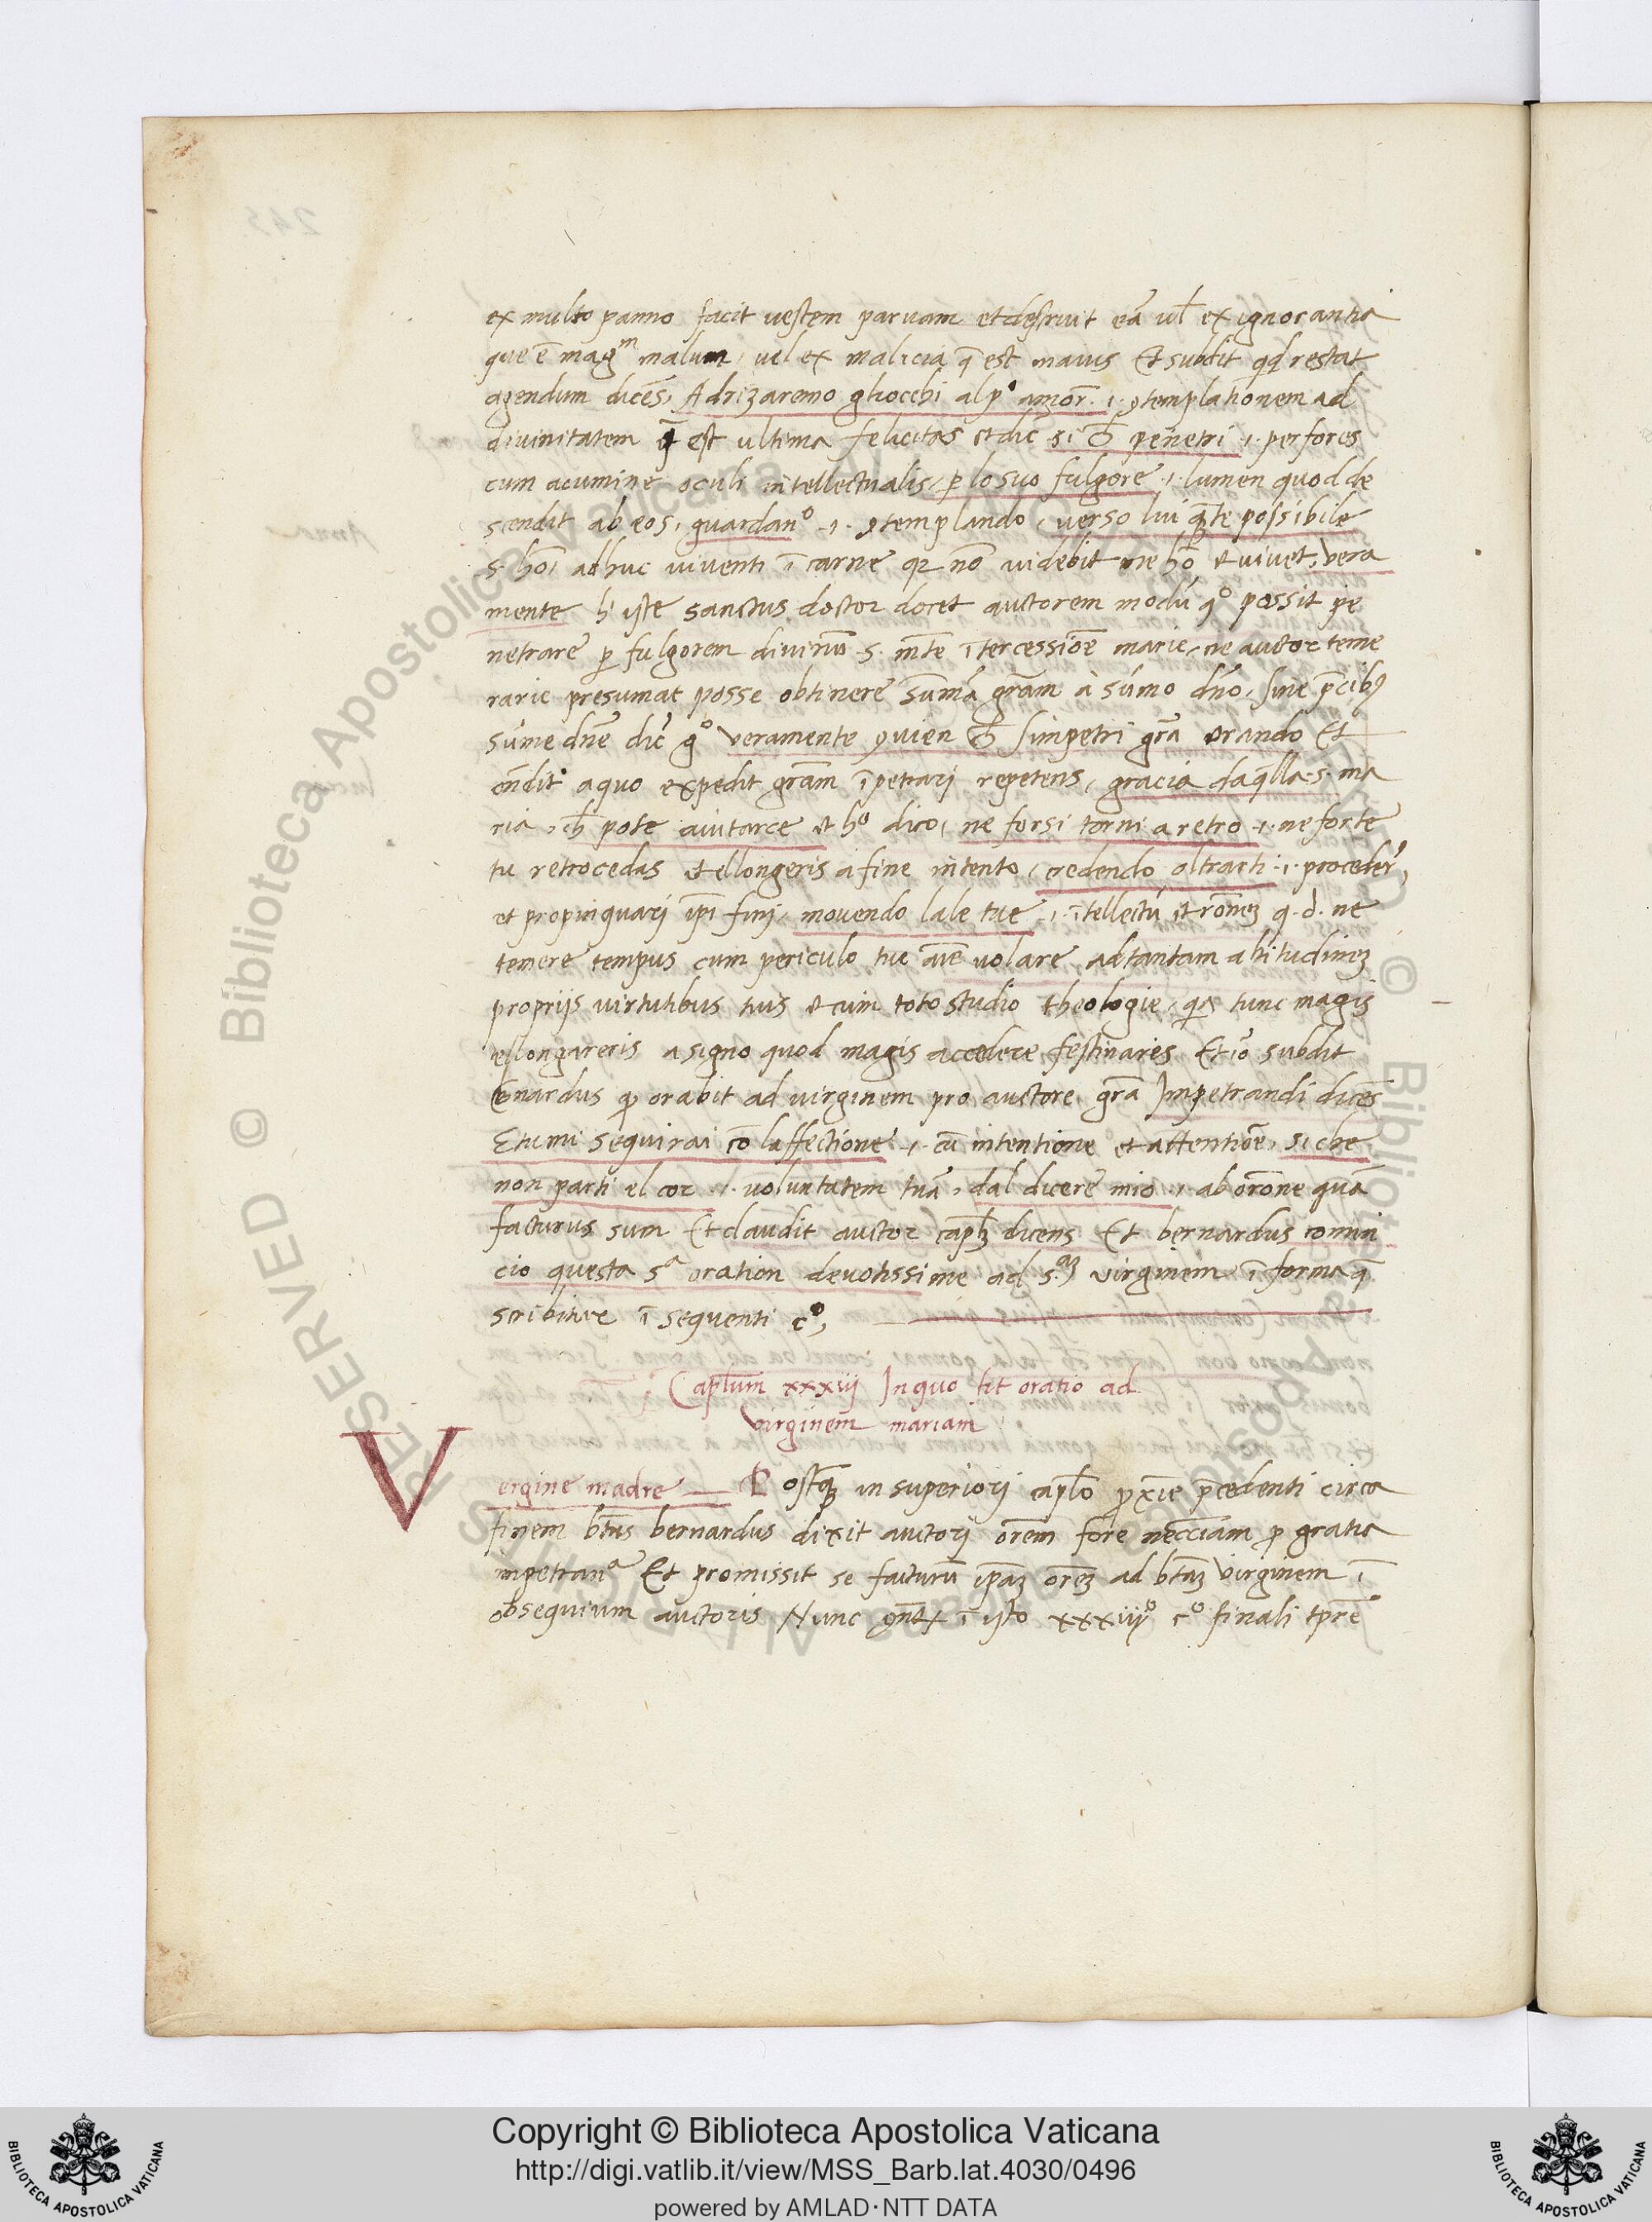 ex multo panno facit uestem paruam et destruit eā ul̄ ex ignorantia
que ē magm malum, uel ex malicia q̄ est maius Et subdit qd restat
agendum dicēs, Adrizaremo gliocchi al p° amor̄ .i. ꝯtemplationem ad
diuinitatem q̄ est ultima felicitas et dic si ch̄ penetri .i. perfores
cum acumine oculi intellectualis, p lo suo fulgore .i. lumen quod de
scendit ab eos, guardan° .i. ꝯtemplando, uerso lui q̄te possibile
s. hōi adhuc uiuenti ī carne qz nō uidebit me hō et uiuet, Vera
mente h iste sanctus doctor docet auctorem modū q° possit pe
netrare p fulgorem diuinū .s. mt̄e ītercessiōe marie, ne auctor teme
rarie presumat posse obtinere sūmā grām à sūmo dn̄o, sine p̄cibꝰ
sūme dn̄e dic̄ g° Veramente ꝯuien ch̄ simpetri grā orando Et
on̄dit aquo expedit grām īpetrari repetens, gracia da q̄lla .s. ma
ria, ch̄ pote aiutarce et h° dico, ne forsi torni a retro .i. ne forte
tu retrocedas et ellongeris a fine intento, credendo oltrarti .i. proceder̄,
et propinquari ip̄i fini, mouendo lale tue .i. ītellectū et rōnez q. d. ne
temere tempus cum periculo tue aīe uolare ad tantam altitudinez
proprijs uirtutibus tuis et cum toto studio theologie, qa tunc magis
ellongareris a signo quod magis accedere festinares Et iō subdit
Bernardus qp orabit ad uirginem pro auctore grā Impetrandi dicēs
Et u mi sequirai cō laffectione .i. cū intentione et attentiōe, si che
non parti el cor .i. uoluntatem tuā, dal dicere mio .i. ab orōne quā
facturus sum Et claudit auctor caplz dicens Et bernardus comin
cio questa sa oration deuotissime ad s.am Virginem ī forma q̄
scribitur ī sequenti c°,
Capl̄um xxxiij In quo fit oratio ad
Virginem mariam
Vergine madre — Postq̄ in superiori caplō p̄xīe p̄cedenti circa
finem bt̄us bernardus dixit auctori orēm fore necc̄iam p gratia
impetrana Et promissit se facturū ip̄az orēz ad bt̄az Virginem ī
obsequium auctoris Nunc ꝯn̄t ī isto xxxiij° c° finali